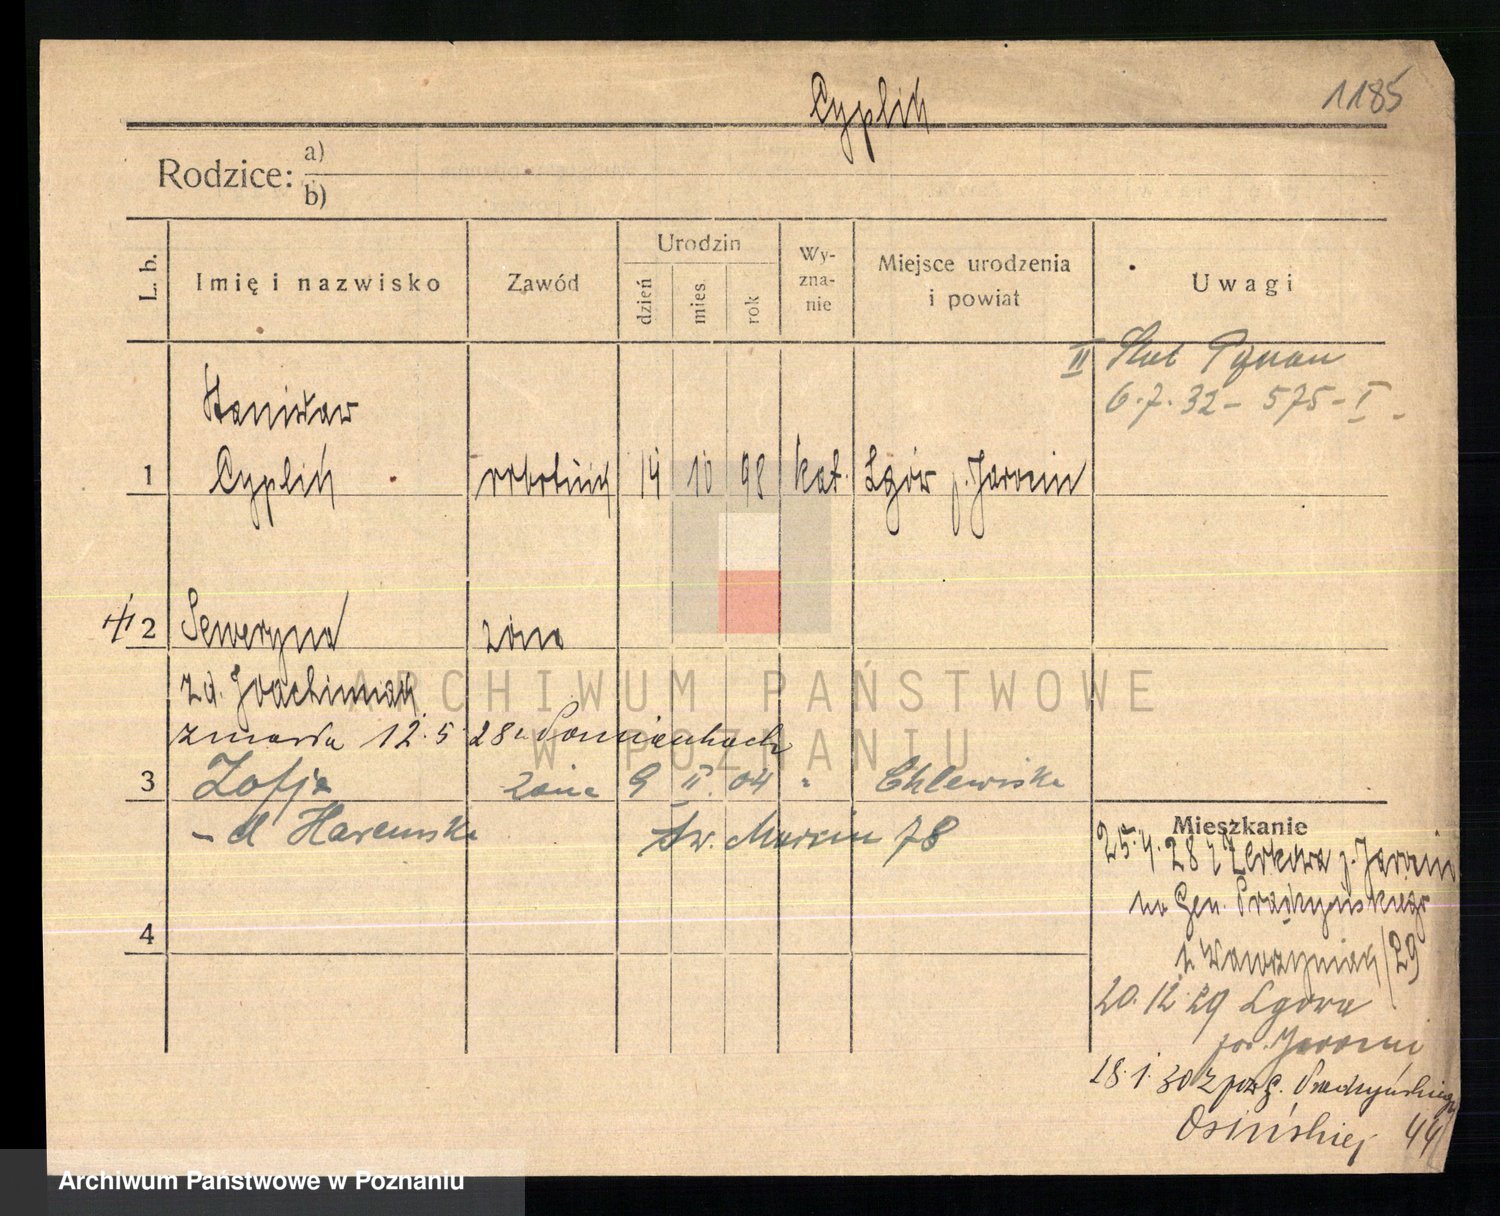 Cyplik
1185
Rodzice: a)
b)
L. b. Imię i nazwisko Zawód Urodzin dzień mies. rok Wy-zna-nie Miejsce urodzenia i powiat Uwagi
II
6.7.32 – 575 – I
Stanisław
1 Cyplik robotnik 14 10 98 kat. Lgów p. Jarocin
2 Seweryna żona
zd. Joachimiak
zmarła 12.5.28
3 Zofja żona 9 II 04 " Chlewiska
– d Haremska Św. Marcin 78
Mieszkanie
25.4.28 z Żerkowa p. Jarocin
na Gen. Prądzyńskiego
z. Wawrzyniak 29
4
20.12.29 Lgowa
pow. Jarocin
18.1.30 z pow. G. Prądzyńskiego
Osińskiej 44
ARCHIWUM PAŃSTWOWE
W POZNANIU
Archiwum Państwowe w Poznaniu